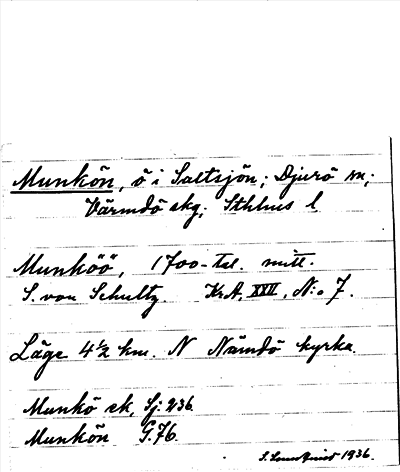 Munkön, ö i Saltsjön; Djurö sn;
Värmdö skg; Sthlms l
Munköö, 1700-tal. mitt.
S. von Schultz. Kr A, XXII, N:o 7.
Läge 4 1/2 km. N Nämdö kyrka.
Munkö sk, Sj. 236.
Munkön G.76.
1936.